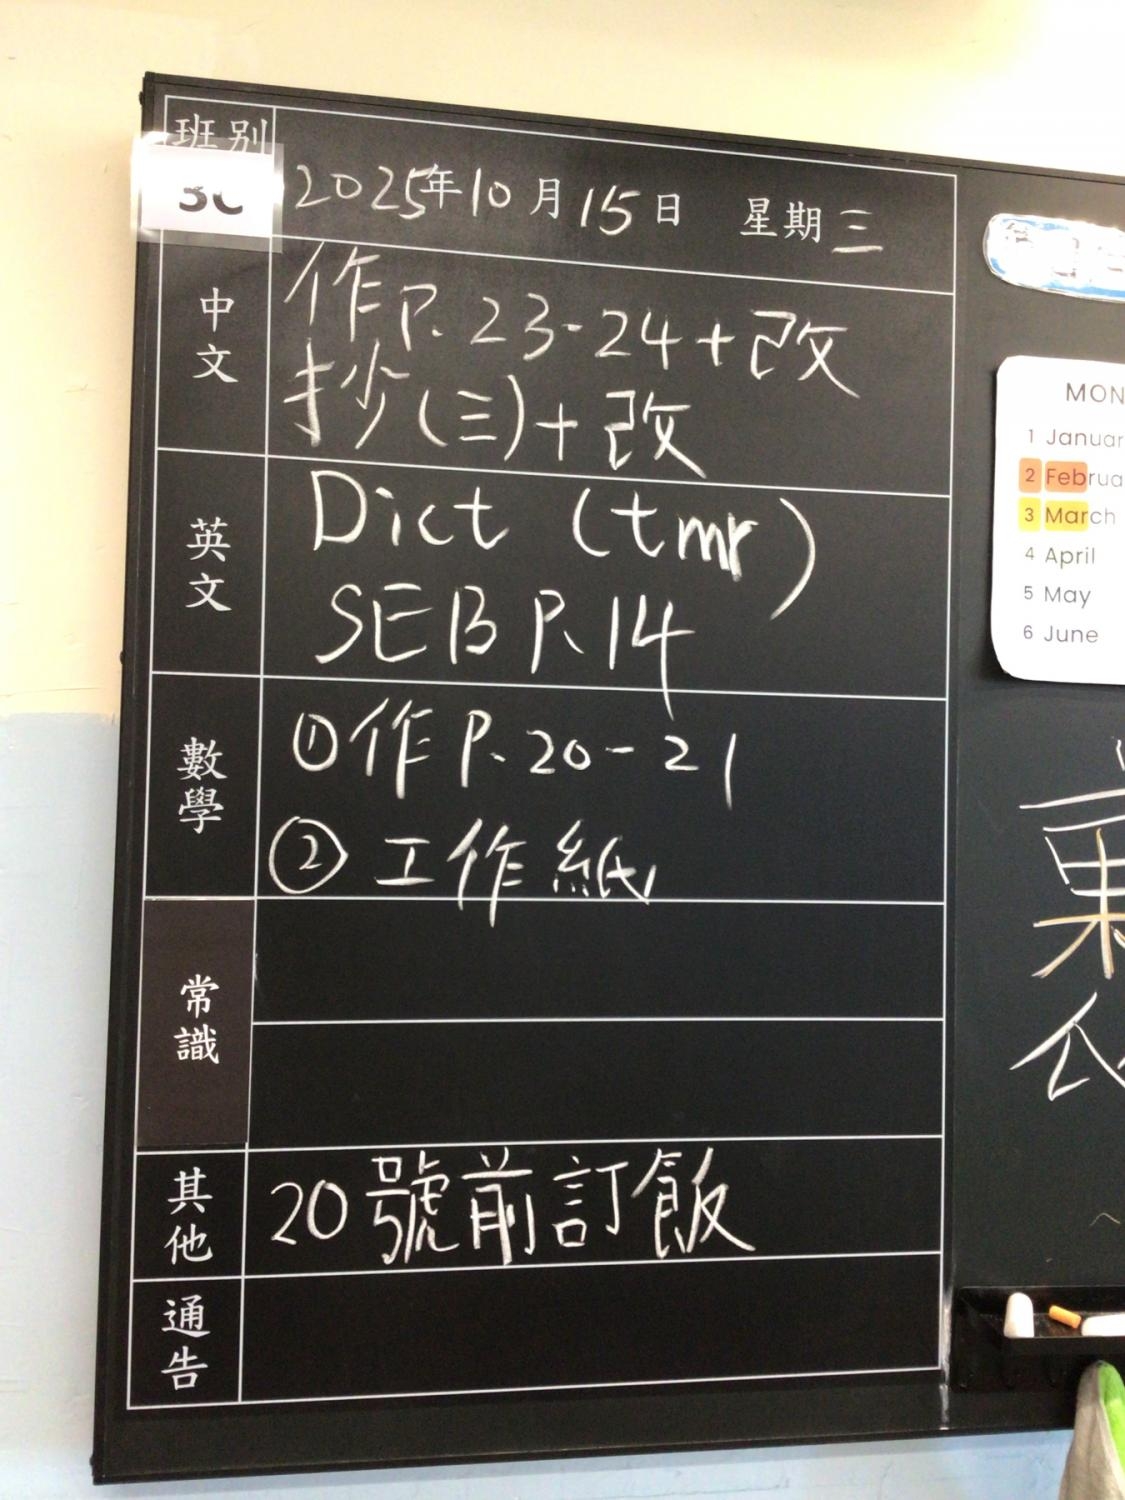 班別
2025年10月15日 星期三
中文
作P.23-24+改
抄(三)+改
英文
Dict (tmr)
SEB P.14
數學
①作P.20-21
②工作紙
常識
其他
20號前訂飯
通告
MON
1 Januar
2 Februa
3 March
4 April
5 May
6 June